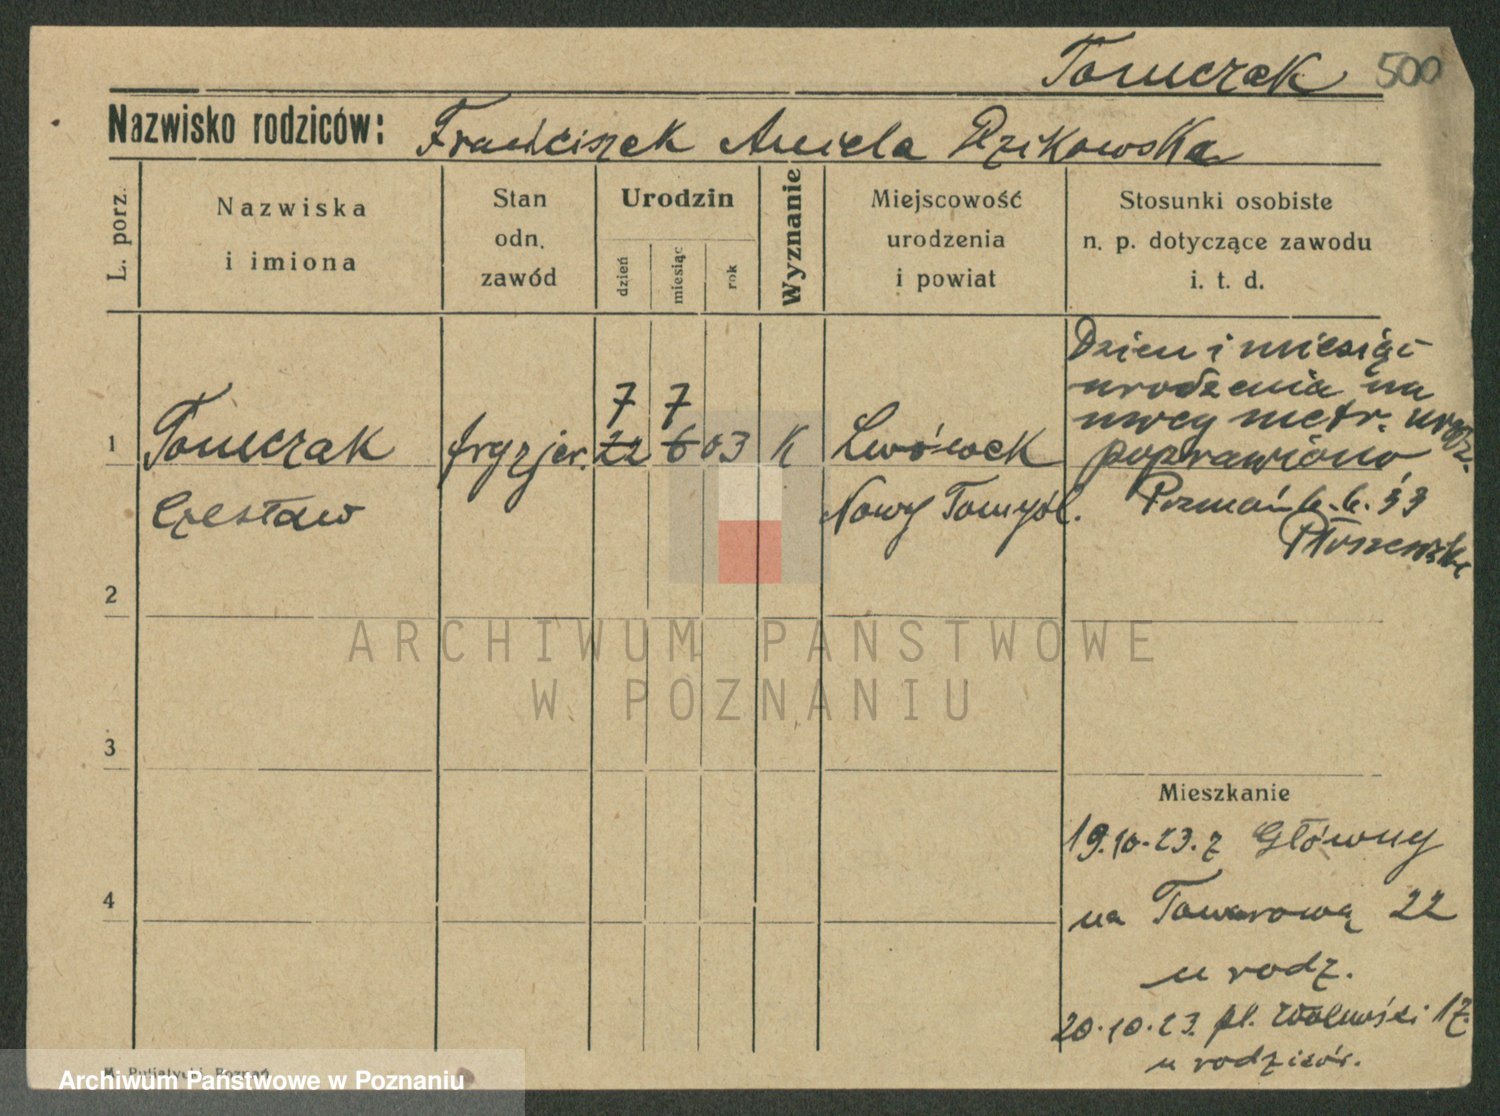 Tomczak 500
Nazwisko rodziców: Franciszek Aniela Dzikowska
L. porz.
Nazwiska
i imiona
Stan
odn.
zawód
Urodzin
dzień
miesiąc
rok
Wyznanie
Miejscowość
urodzenia
i powiat
Stosunki osobiste
n. p. dotyczące zawodu
i. t. d.
Dzień i miesiąc
urodzenia na
mocy metr. urodz.
poprawiono
Poznań 6.6.33
7 7
1 Tomczak fryzjer. 22 6 03 K Lwówek
Czesław Nowy Tomyśl.
2
3
4
Mieszkanie
19.10.23. z Główny
na Towarową 22
u rodz.
20.10.23. pl. Wolności 17.
u rodziców.
ARCHIWUM PAŃSTWOWE
W POZNANIU
Archiwum Państwowe w Poznaniu